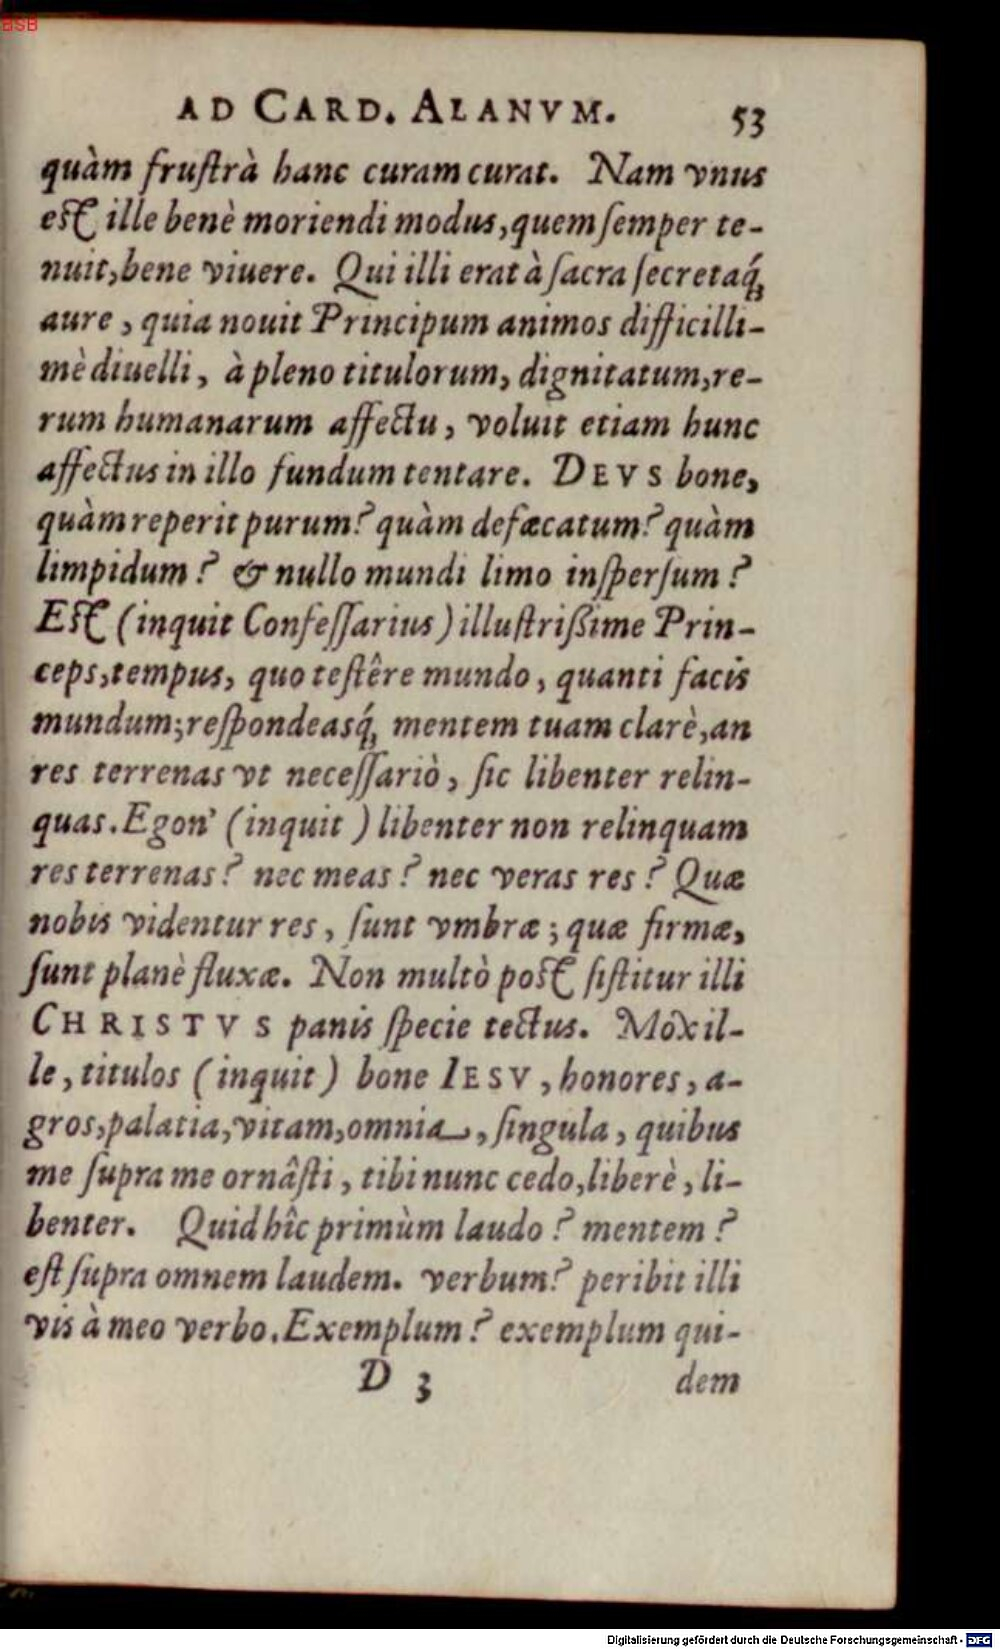 BSB
AD CARD. ALANVM. 53
quàm fruſtrà hanc curam curat. Nam vnus
eſt ille benè moriendi modus, quem ſemper te-
nuit, bene viuere. Qui illi erat à ſacra ſecretaq́;
aure, quia nouit Principum animos difficilli-
mè diuelli, à pleno titulorum, dignitatum, re-
rum humanarum affectu, voluit etiam hunc
affectus in illo fundum tentare. DEVS bone,
quàm reperit purum? quàm defæcatum? quàm
limpidum? & nullo mundi limo inſperſum?
Eſt (inquit Confeſſarius) illuſtriſsime Prin-
ceps, tempus, quo teſtêre mundo, quanti facis
mundum; reſpondeasq́; mentem tuam clarè, an
res terrenas vt neceſſariò, ſic libenter relin-
quas. Egon' (inquit) libenter non relinquam
res terrenas? nec meas? nec veras res? Quæ
nobis videntur res, ſunt vmbræ; quæ firmæ,
ſunt planè fluxæ. Non multò poſt ſiſtitur illi
CHRISTVS panis ſpecie tectus. Mox il-
le, titulos (inquit) bone IESV, honores, a-
gros, palatia, vitam, omnia, ſingula, quibus
me ſupra me ornâſti, tibi nunc cedo, liberè, li-
benter. Quid hîc primùm laudo? mentem?
eſt ſupra omnem laudem. verbum? peribit illi
vis à meo verbo. Exemplum? exemplum qui-
D 3 dem
Digitalisierung gefördert durch die Deutsche Forschungsgemeinschaft - DFG